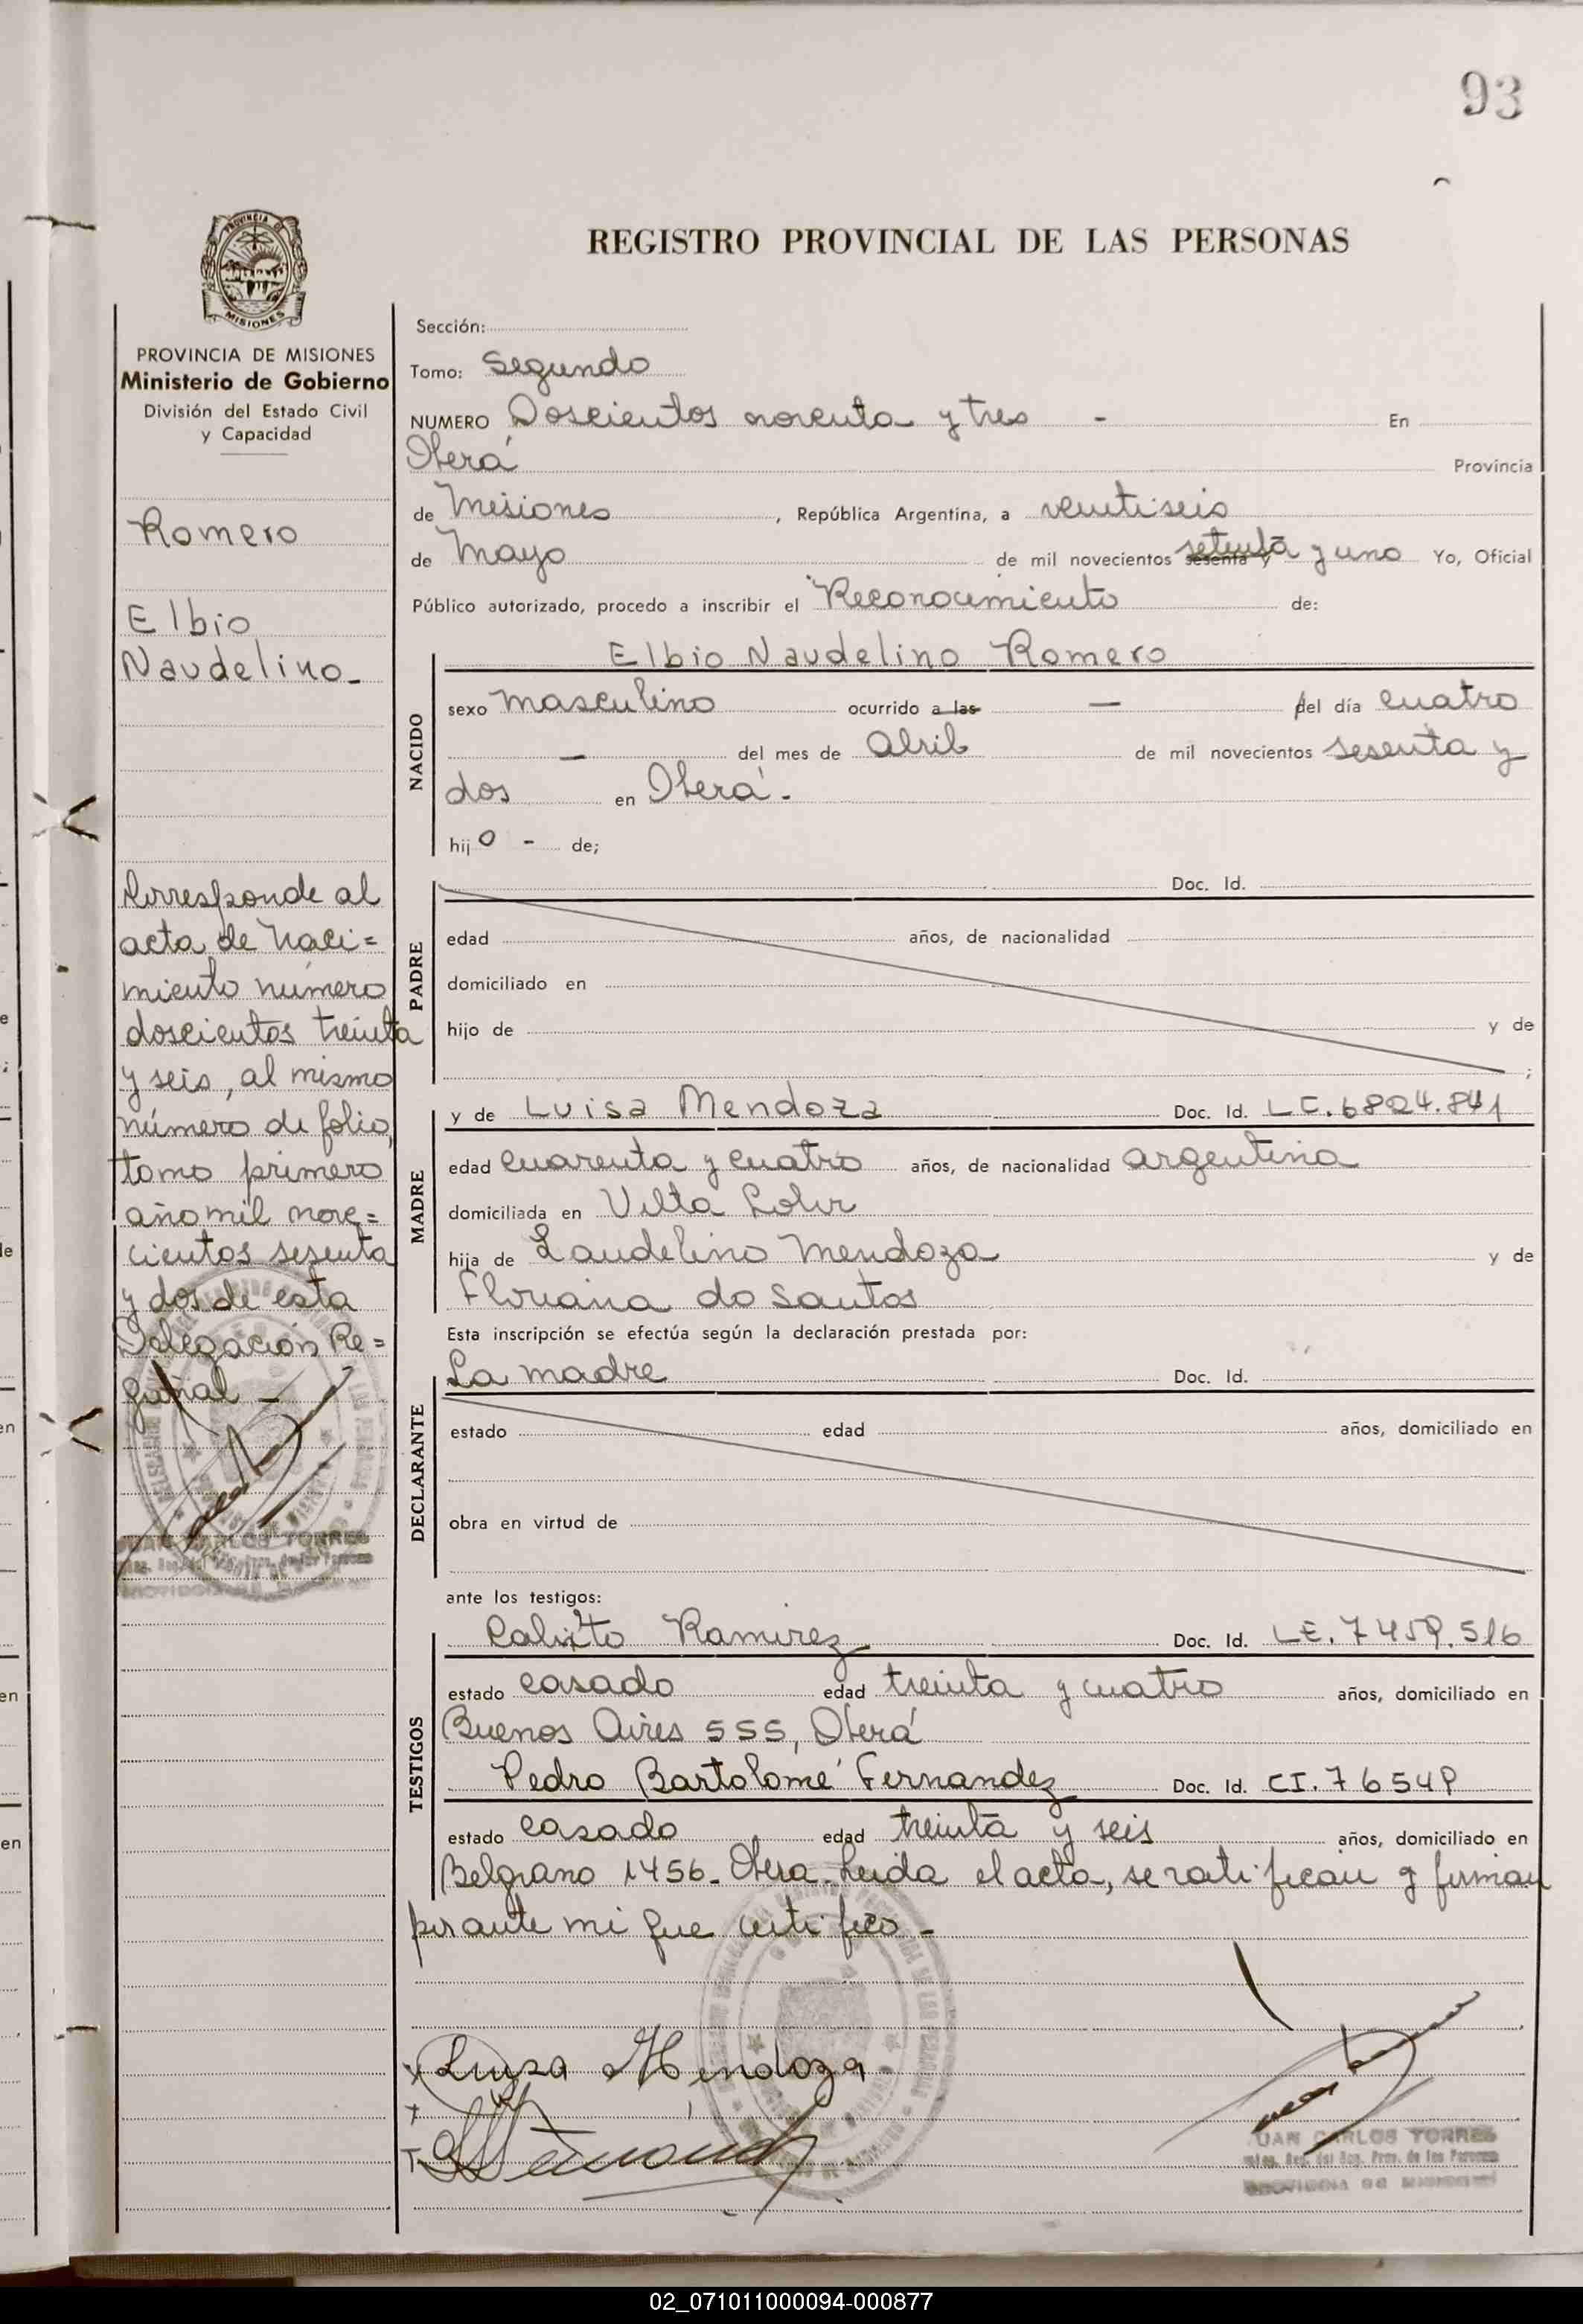 93
REGISTRO PROVINCIAL DE LAS PERSONAS
PROVINCIA DE MISIONES
MISIONES
PROVINCIA DE MISIONES
Ministerio de Gobierno
División del Estado Civil
y Capacidad
Romero
Elbio
Naudelino-
Corresponde al
acta de naci=
miento número
doscientos treinta
y seis, al mismo
número de folio,
tomo primero
año mil nove=
cientos sesenta
y dos de esta
Delegación Re=
gional -
JUAN CARLOS TORRES
Sección:
Tomo: Segundo
NUMERO Doscientos noventa y tres - En
Oberá Provincia
de Misiones, República Argentina, a veintiseis
de Mayo de mil novecientos sesenta y setenta y uno Yo, Oficial
Público autorizado, procedo a inscribir el Reconocimiento de:
NACIDO
Elbio Naudelino Romero
sexo masculino ocurrido a las — del día cuatro
— del mes de Abril de mil novecientos sesenta y
dos en Oberá.
hijo - de;
PADRE
Doc. Id.
edad años, de nacionalidad
domiciliado en
hijo de y de
;
MADRE
y de Luisa Mendoza Doc. Id. LC. 6824.841
edad cuarenta y cuatro años, de nacionalidad argentina
domiciliada en Villa
hija de Laudelino Mendoza y de
Floriana do Santos
Esta inscripción se efectúa según la declaración prestada por:
DECLARANTE
La madre Doc. Id.
estado edad años, domiciliado en
obra en virtud de
ante los testigos:
TESTIGOS
Calixto Ramirez Doc. Id. LE. 7459.516
estado casado edad treinta y cuatro años, domiciliado en
Buenos Aires 555, Oberá
Pedro Bartolomé Fernandez Doc. Id. CI. 76549
estado casado edad treinta y seis años, domiciliado en
Belgrano 1456. Obera. Leida el acta, se ratifican y firman
por ante mi que certifico -
Luisa Mendoza
JUAN CARLOS TORRES
02_071011000094-000877